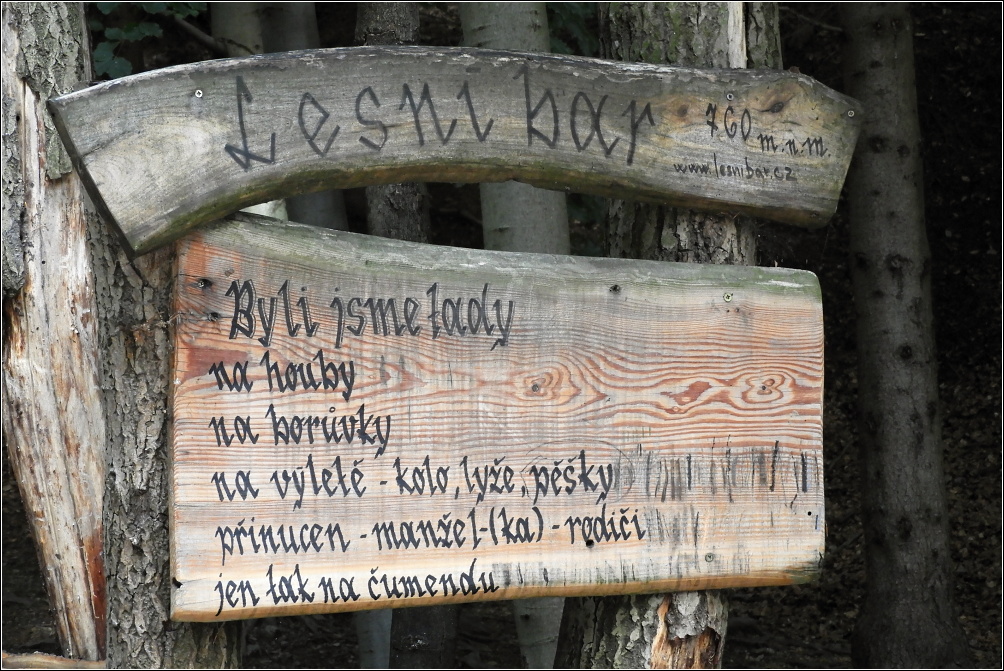 Lesní bar
760 m.n.m.
www.lesnibar.cz
Byli jsme tady
na houby
na borůvky
na výletě - kolo, lyže, pěšky
přinucen - manžel-(ka) - rodiči
jen tak na čumendu